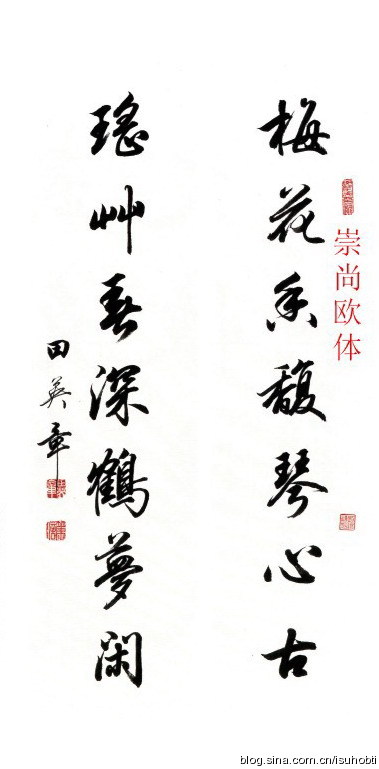 崇尚欧体
梅花香馥琴心古
瑤艸春深鶴夢閑
田英章
blog.sina.com.cn/isuhobti